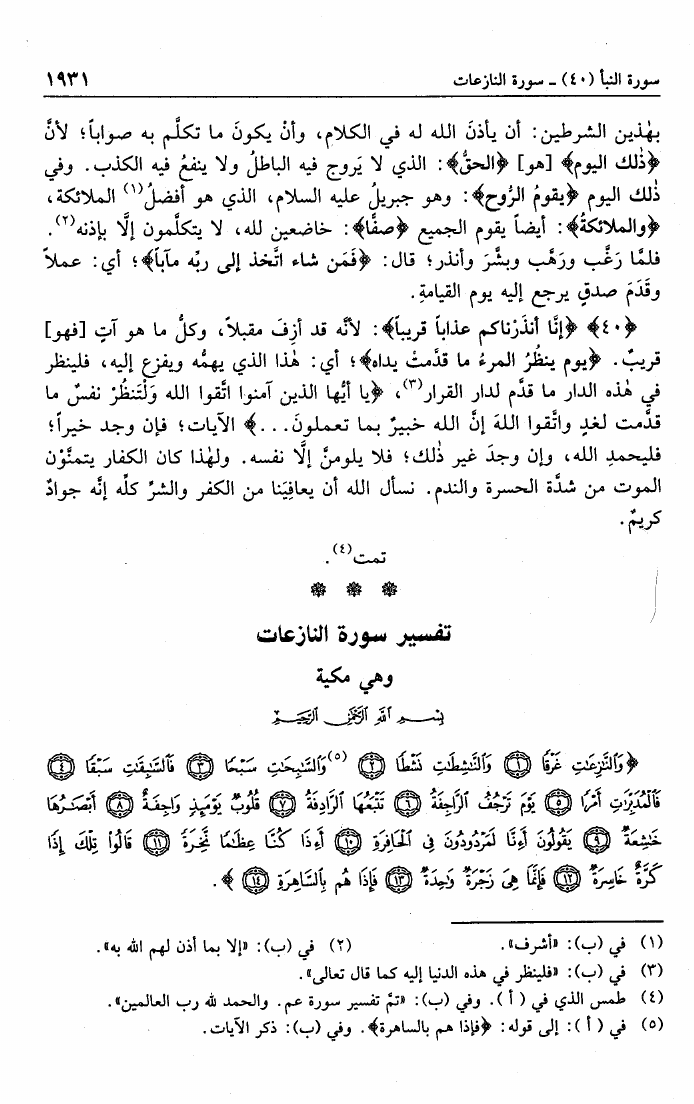 سورة النبأ (٤٠) ـ سورة النازعات ١٩٣١
بهٰذين الشرطين: أن يأذنَ الله له في الكلام، وأنْ يكونَ ما تكلَّم به صواباً؛ لأنَّ
﴿ذٰلك اليوم﴾ [هو] ﴿الحقُّ﴾: الذي لا يَروج فيه الباطلُ ولا ينفعُ فيه الكذب. وفي
ذٰلك اليوم ﴿يقومُ الرُّوح﴾: وهو جبريلُ عليه السلام، الذي هو أفضلُ(١) الملائكة،
﴿والملائكةُ﴾: أيضاً يقوم الجميع ﴿صفًّا﴾: خاضعين لله، لا يتكلَّمون إلَّا بإذنه(٢).
فلمَّا رَغَّب ورَهَّب وبشَّرَ وأنذر؛ قال: ﴿فَمَن شاء اتَّخذ إلى ربِّه مآباً﴾؛ أي: عملاً
وقَدَمَ صدقٍ يرجع إليه يوم القيامةِ.
﴿٤٠﴾ ﴿إنَّا أنذَرْناكم عذاباً قريباً﴾: لأنَّه قد أزِفَ مقبلاً، وكلُّ ما هو آتٍ [فهو]
قريبٌ. ﴿يوم ينظُرُ المرءُ ما قدَّمتْ يداه﴾؛ أي: هٰذا الذي يهمُّه ويفزع إليه، فلينظر
في هٰذه الدار ما قدَّم لدار القرار(٣)، ﴿يا أيُّها الذين آمنوا اتَّقوا الله وَلْتَنظُرْ نفسٌ ما
قدَّمت لغدٍ واتَّقوا اللهَ إنَّ الله خبيرٌ بما تعملونَ...﴾ الآيات؛ فإن وجد خيراً؛
فليحمدِ الله، وإن وجدَ غير ذٰلك؛ فلا يلومنَّ إلَّا نفسه. ولهٰذا كان الكفار يتمنَّوْن
الموت من شدَّة الحسرة والندم. نسأل الله أن يعافِيَنا من الكفر والشرِّ كلِّه إنَّه جوادٌ
كريمٌ.
تمت(٤).
تفسير سورة النازعات
وهي مكية
بِسْمِ اللَّهِ الرَّحْمَٰنِ الرَّحِيمِ
﴿وَالنَّازِعَاتِ غَرْقًا ١ وَالنَّاشِطَاتِ نَشْطًا ٢ (٥)وَالسَّابِحَاتِ سَبْحًا ٣ فَالسَّابِقَاتِ سَبْقًا ٤
فَالْمُدَبِّرَاتِ أَمْرًا ٥ يَوْمَ تَرْجُفُ الرَّاجِفَةُ ٦ تَتْبَعُهَا الرَّادِفَةُ ٧ قُلُوبٌ يَوْمَئِذٍ وَاجِفَةٌ ٨ أَبْصَارُهَا
خَاشِعَةٌ ٩ يَقُولُونَ أَءِنَّا لَمَرْدُودُونَ فِي الْحَافِرَةِ ١٠ أَءِذَا كُنَّا عِظَامًا نَّخِرَةً ١١ قَالُوا تِلْكَ إِذًا
كَرَّةٌ خَاسِرَةٌ ١٢ فَإِنَّمَا هِيَ زَجْرَةٌ وَاحِدَةٌ ١٣ فَإِذَا هُم بِالسَّاهِرَةِ ١٤﴾.
(١) في (ب): «أشرف». (٢) في (ب): «إلا بما أذن لهم الله به».
(٣) في (ب): «فلينظر في هذه الدنيا إليه كما قال تعالى».
(٤) طمس الذي في (أ). وفي (ب): «تمَّ تفسير سورة عم. والحمد لله رب العالمين».
(٥) في (أ): إلى قوله: ﴿فإذا هم بالساهرة﴾. وفي (ب): ذكر الآيات.